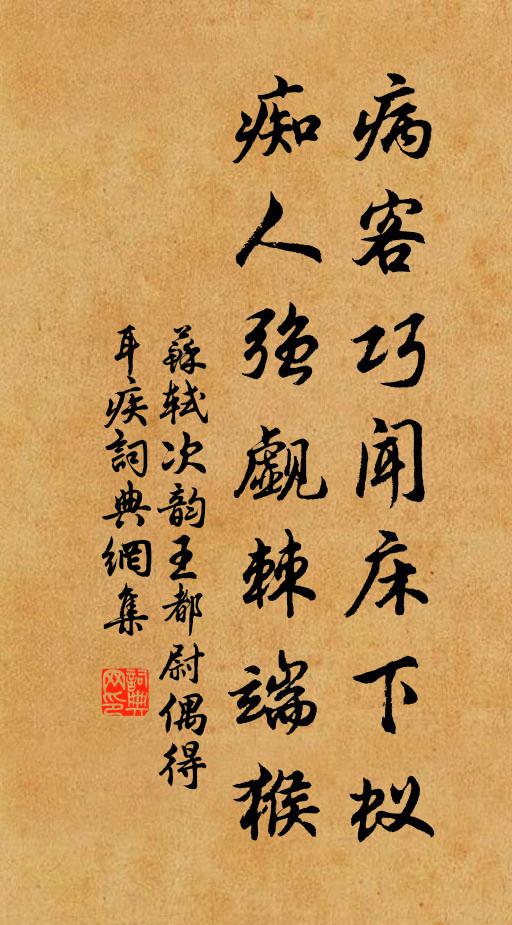 病客巧闻床下蚁
痴人强觑棘端猴
蘇轼次韵王都尉偶得
耳疾詞典網集
詞典
网印